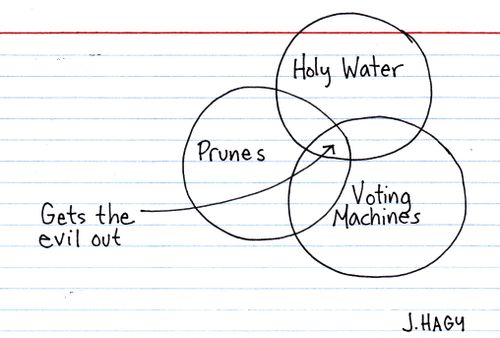 Holy Water
Prunes
Voting
Machines
Gets the
evil out
J.HAGY